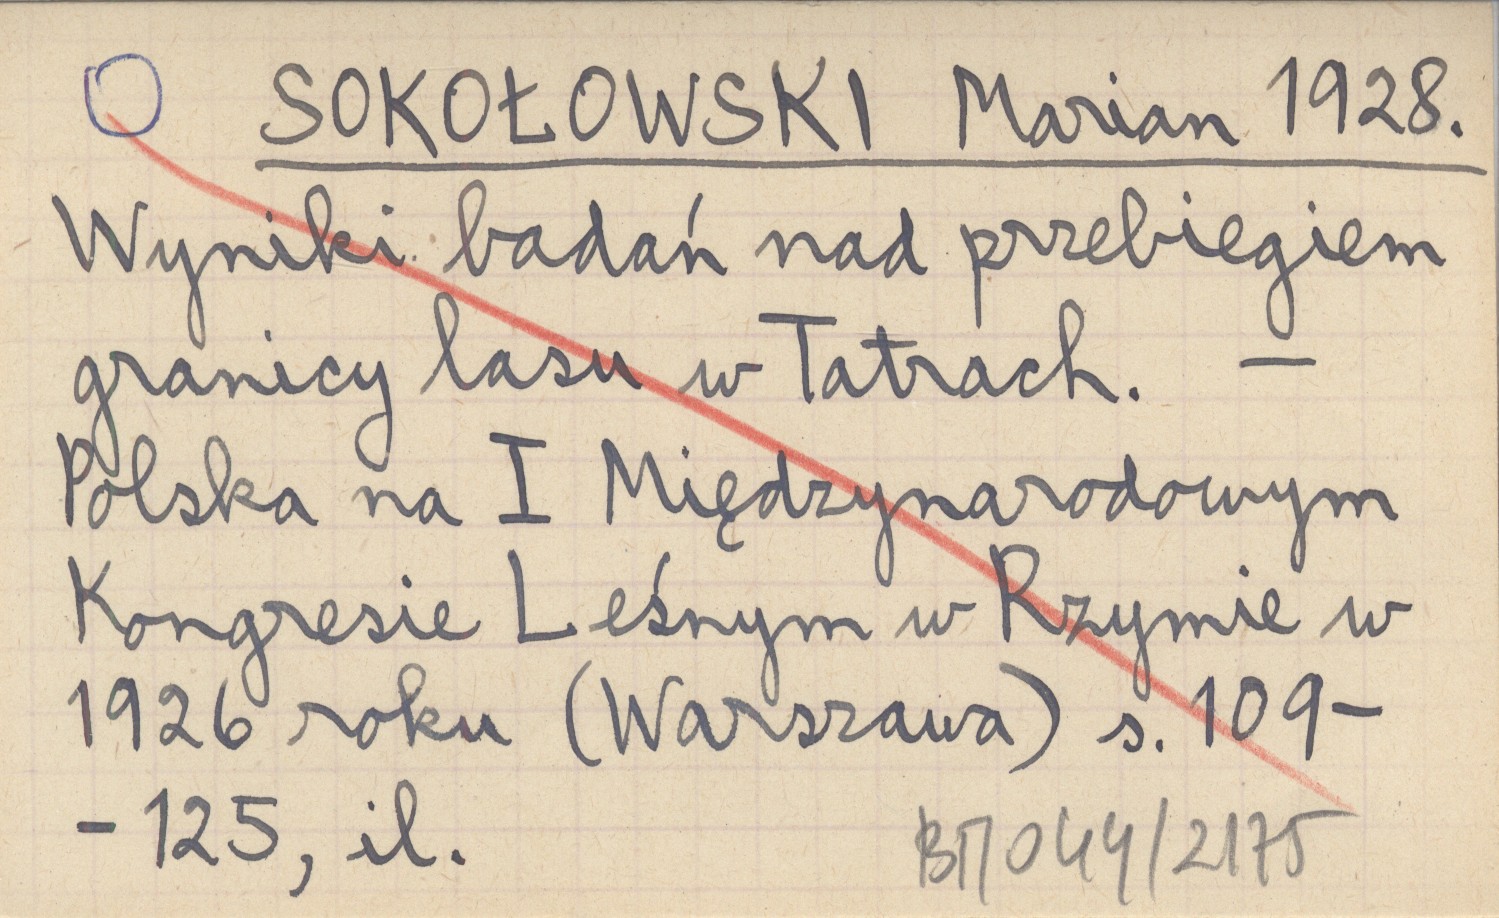 O SOKOŁOWSKI Marian 1928.
Wyniki badań nad przebiegiem
granicy lasu w Tatrach. —
Polska na I Międzynarodowym
Kongresie Leśnym w Rzymie w
1926 roku (Warszawa) s. 109-
- 125, il.
044/2175